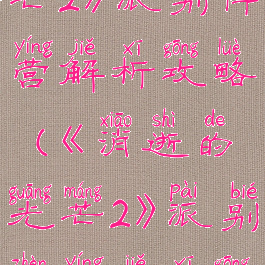 芒2》派别阵
yíng jiě xī gōng lüè
营解析攻略
xiāo shì de
（《消逝的
guāng máng pài bié
光芒2》派别
zhèn yíng jiě xī gōng